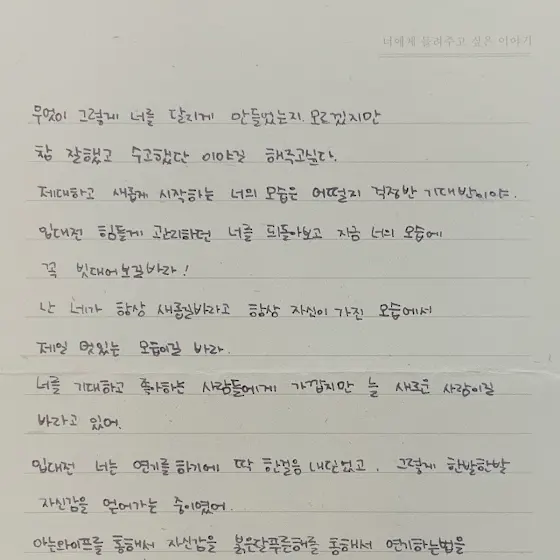 너에게 들려주고 싶은 이야기
무엇이 그렇게 너를 달리게 만들었는지 모르겠지만
참 잘했고 수고했단 이야길 해주고싶다.
제대하고 새롭게 시작하는 너의 모습은 어떨지 걱정반 기대반이야.
입대전 힘들게 관리하던 너를 되돌아보고 지금 너의 모습에
꼭 빗대어보길바라!
난 네가 항상 새롭길바라고 항상 자신이 가진 모습에서
제일 멋있는 모습이길 바라.
너를 기대하고 좋아하는 사람들에게 가깝지만 늘 새로운 사람이길
바라고 있어.
입대전 너는 연기를하기에 딱 한걸음 내딛었고, 그렇게 한발한발
자신감을 얻어가는 중이였어.
아는와이프를 통해서 자신감을 붉은달푸른해를 통해서 연기하는법을